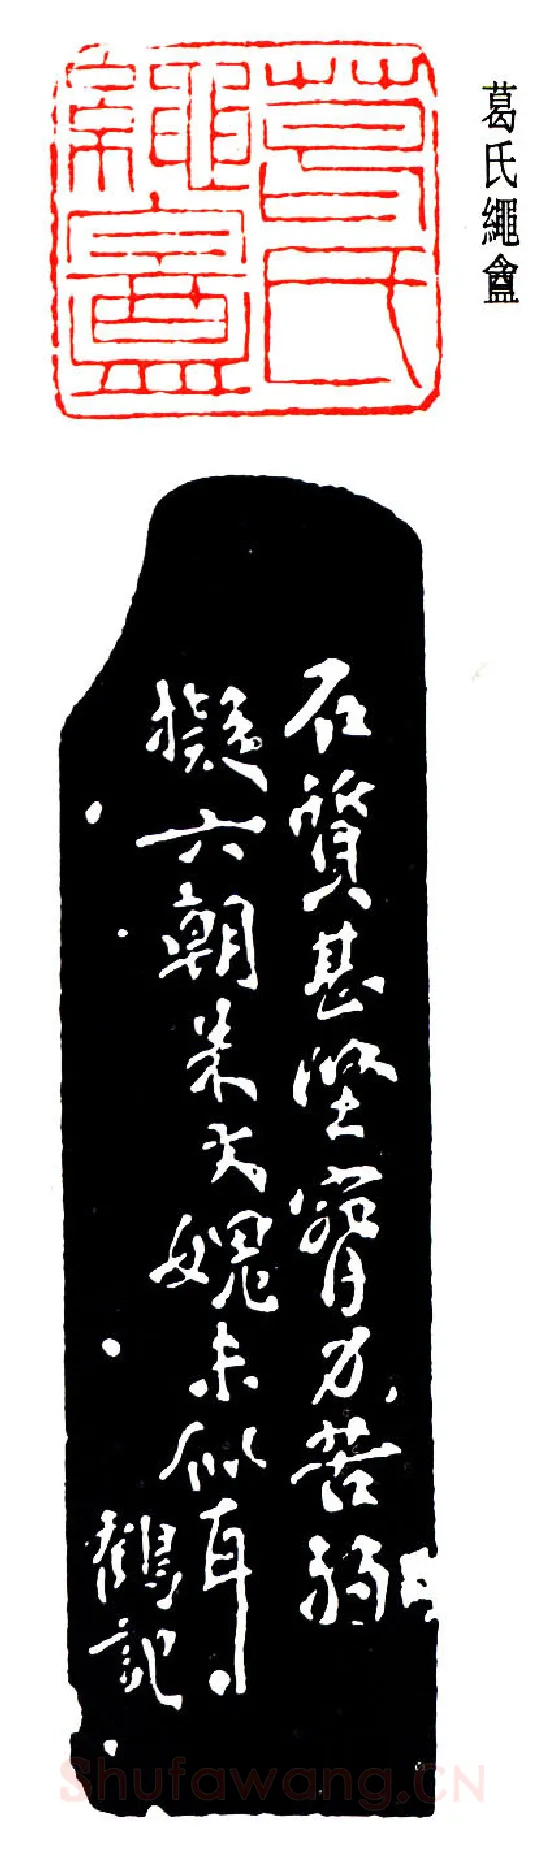 葛氏繩盦
葛氏
繩盦
石質甚堅臂力苦弱
擬六朝朱文媿未似耳
鶴記
Shufawang.CN